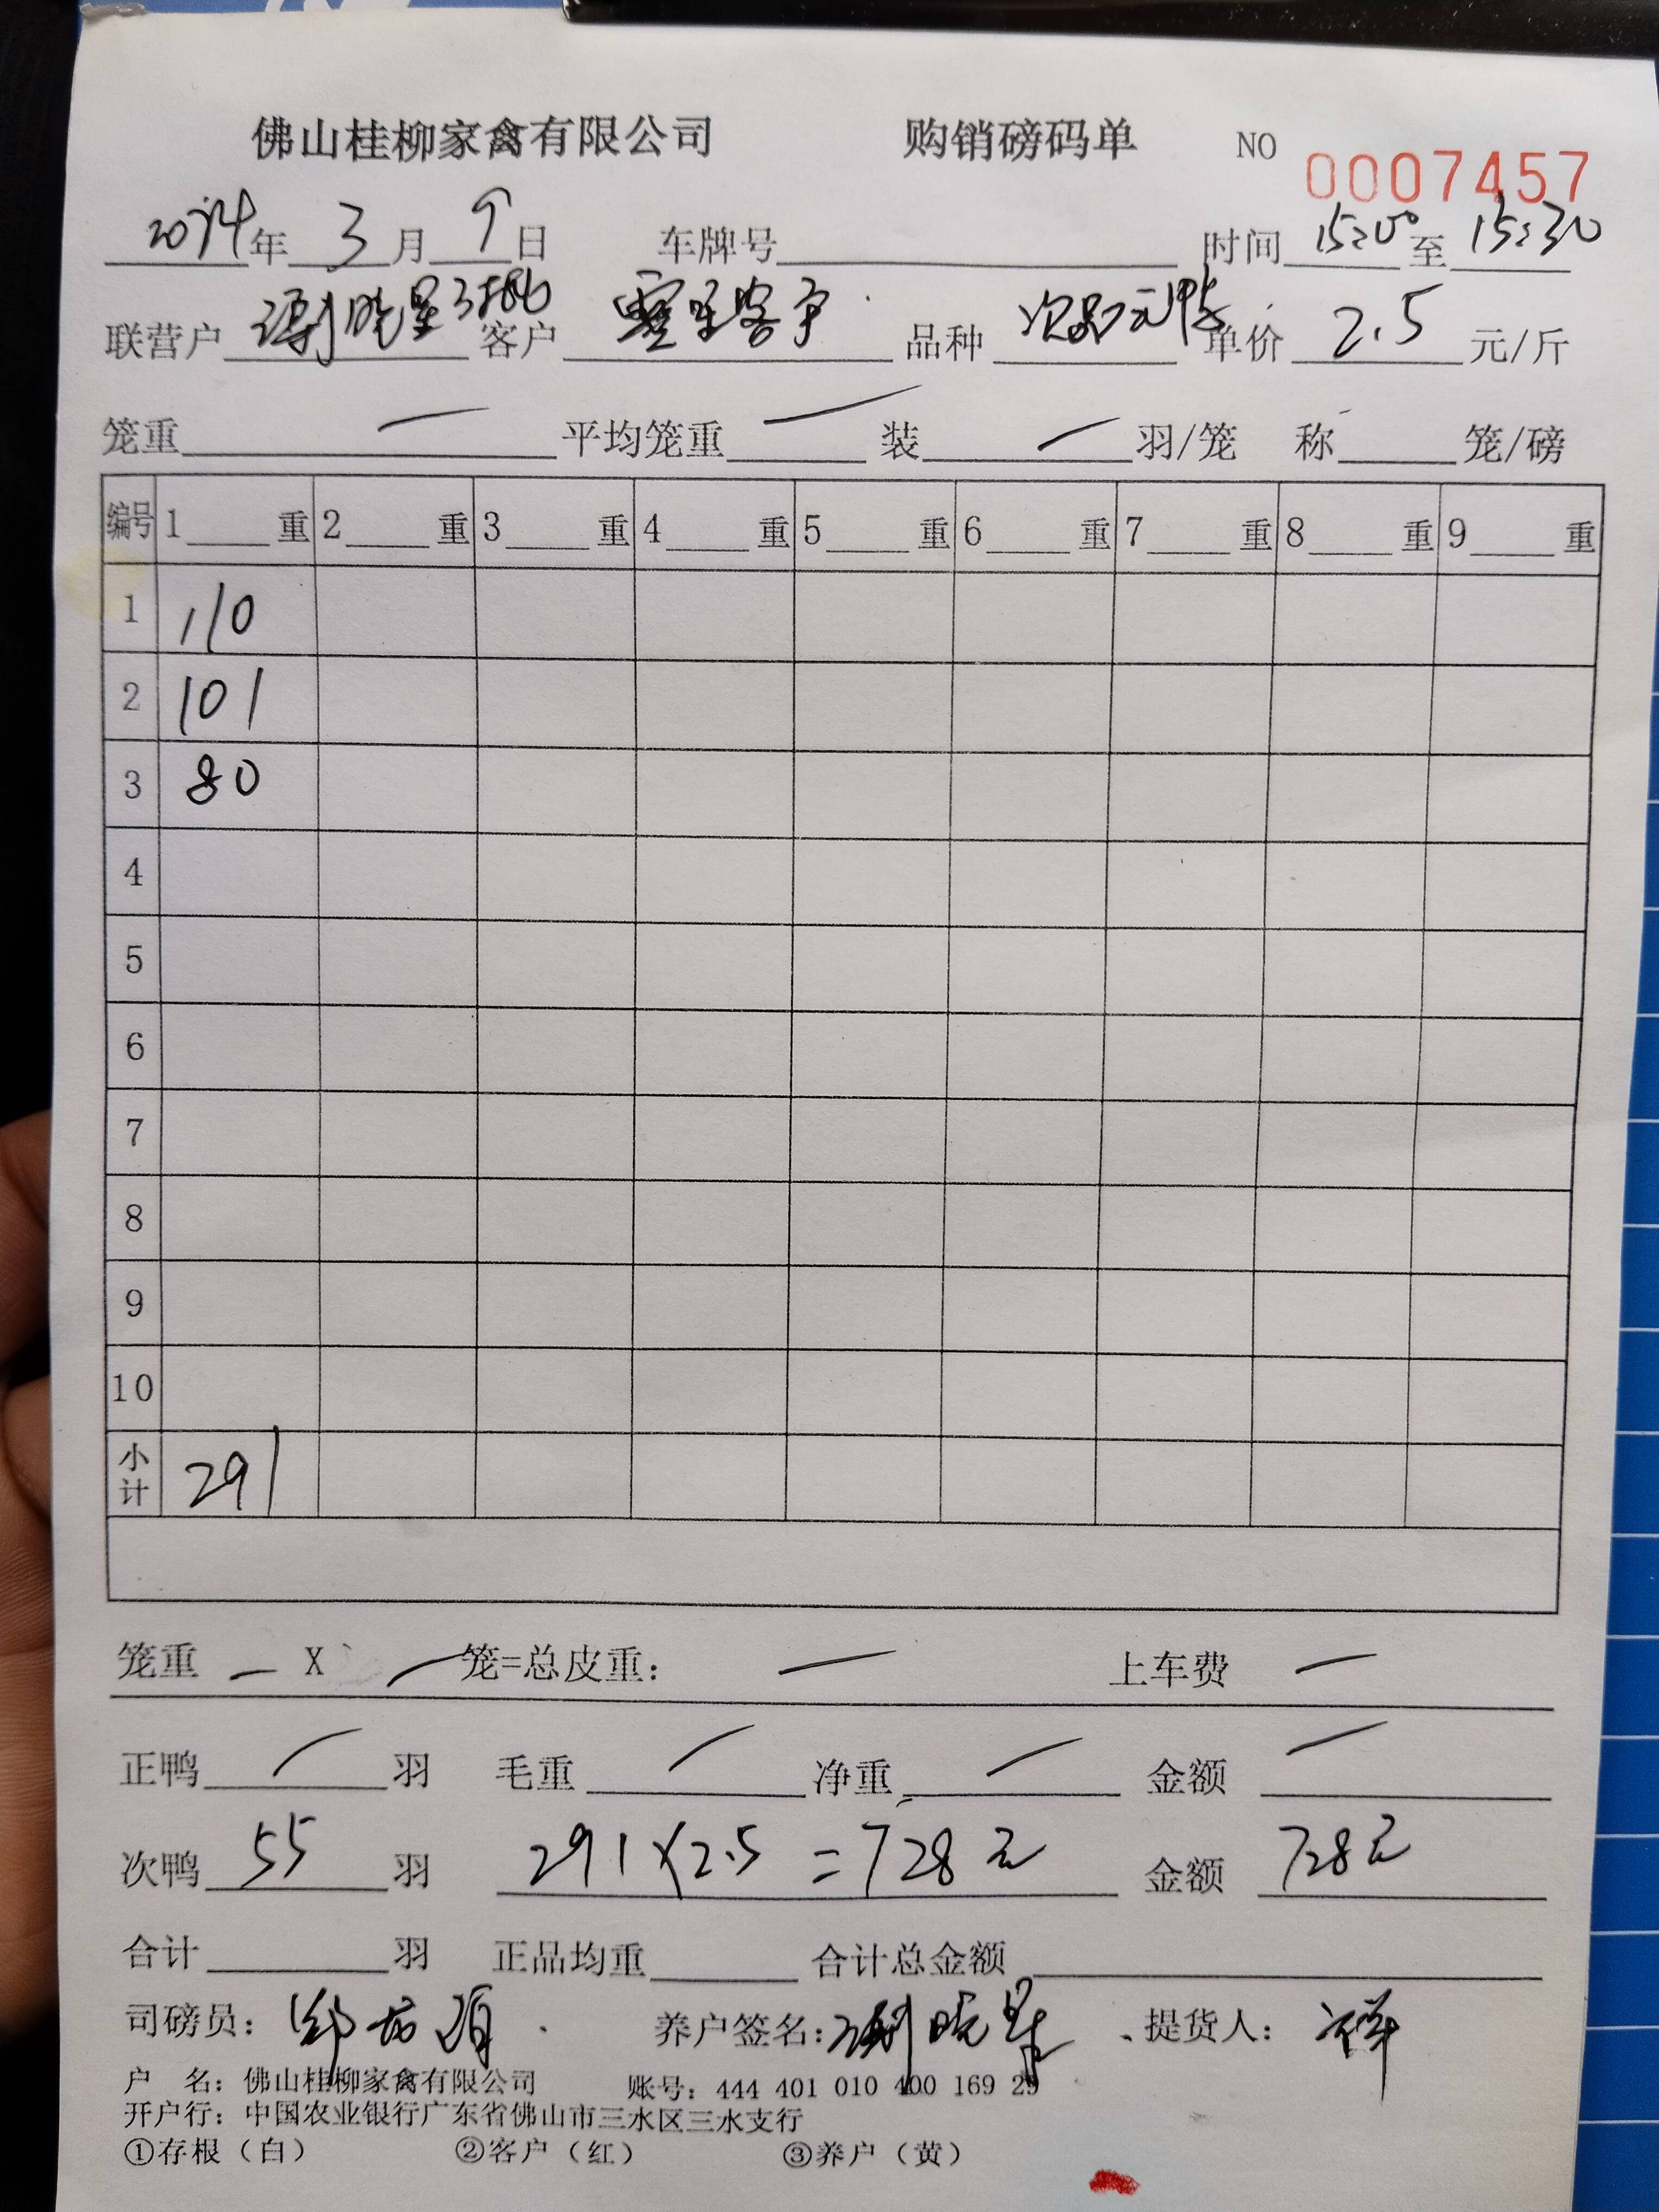 佛山桂柳家禽有限公司 购销磅码单 NO 0007457
2024年 3月 9日 车牌号 时间 15:00 至 15:30
联营户 谭晓星3批 客户 零星客户 品种 次品元鸭 单价 2.5 元/斤
笼重 — 平均笼重 — 装 — 羽/笼 称 笼/磅
编号 1 重 2 重 3 重 4 重 5 重 6 重 7 重 8 重 9 重
1 110
2 101
3 80
4
5
6
7
8
9
10
小计 291
笼重 — X — 笼=总皮重: — 上车费 —
正鸭 — 羽 毛重 — 净重 — 金额 —
次鸭 55 羽 291×2.5=728元 金额 728元
合计 羽 正品均重 合计总金额
司磅员: 养户签名: 晓星 提货人:
户 名: 佛山桂柳家禽有限公司 账号: 444 401 010 400 169 29
开户行: 中国农业银行广东省佛山市三水区三水支行
①存根(白) ②客户(红) ③养户(黄)